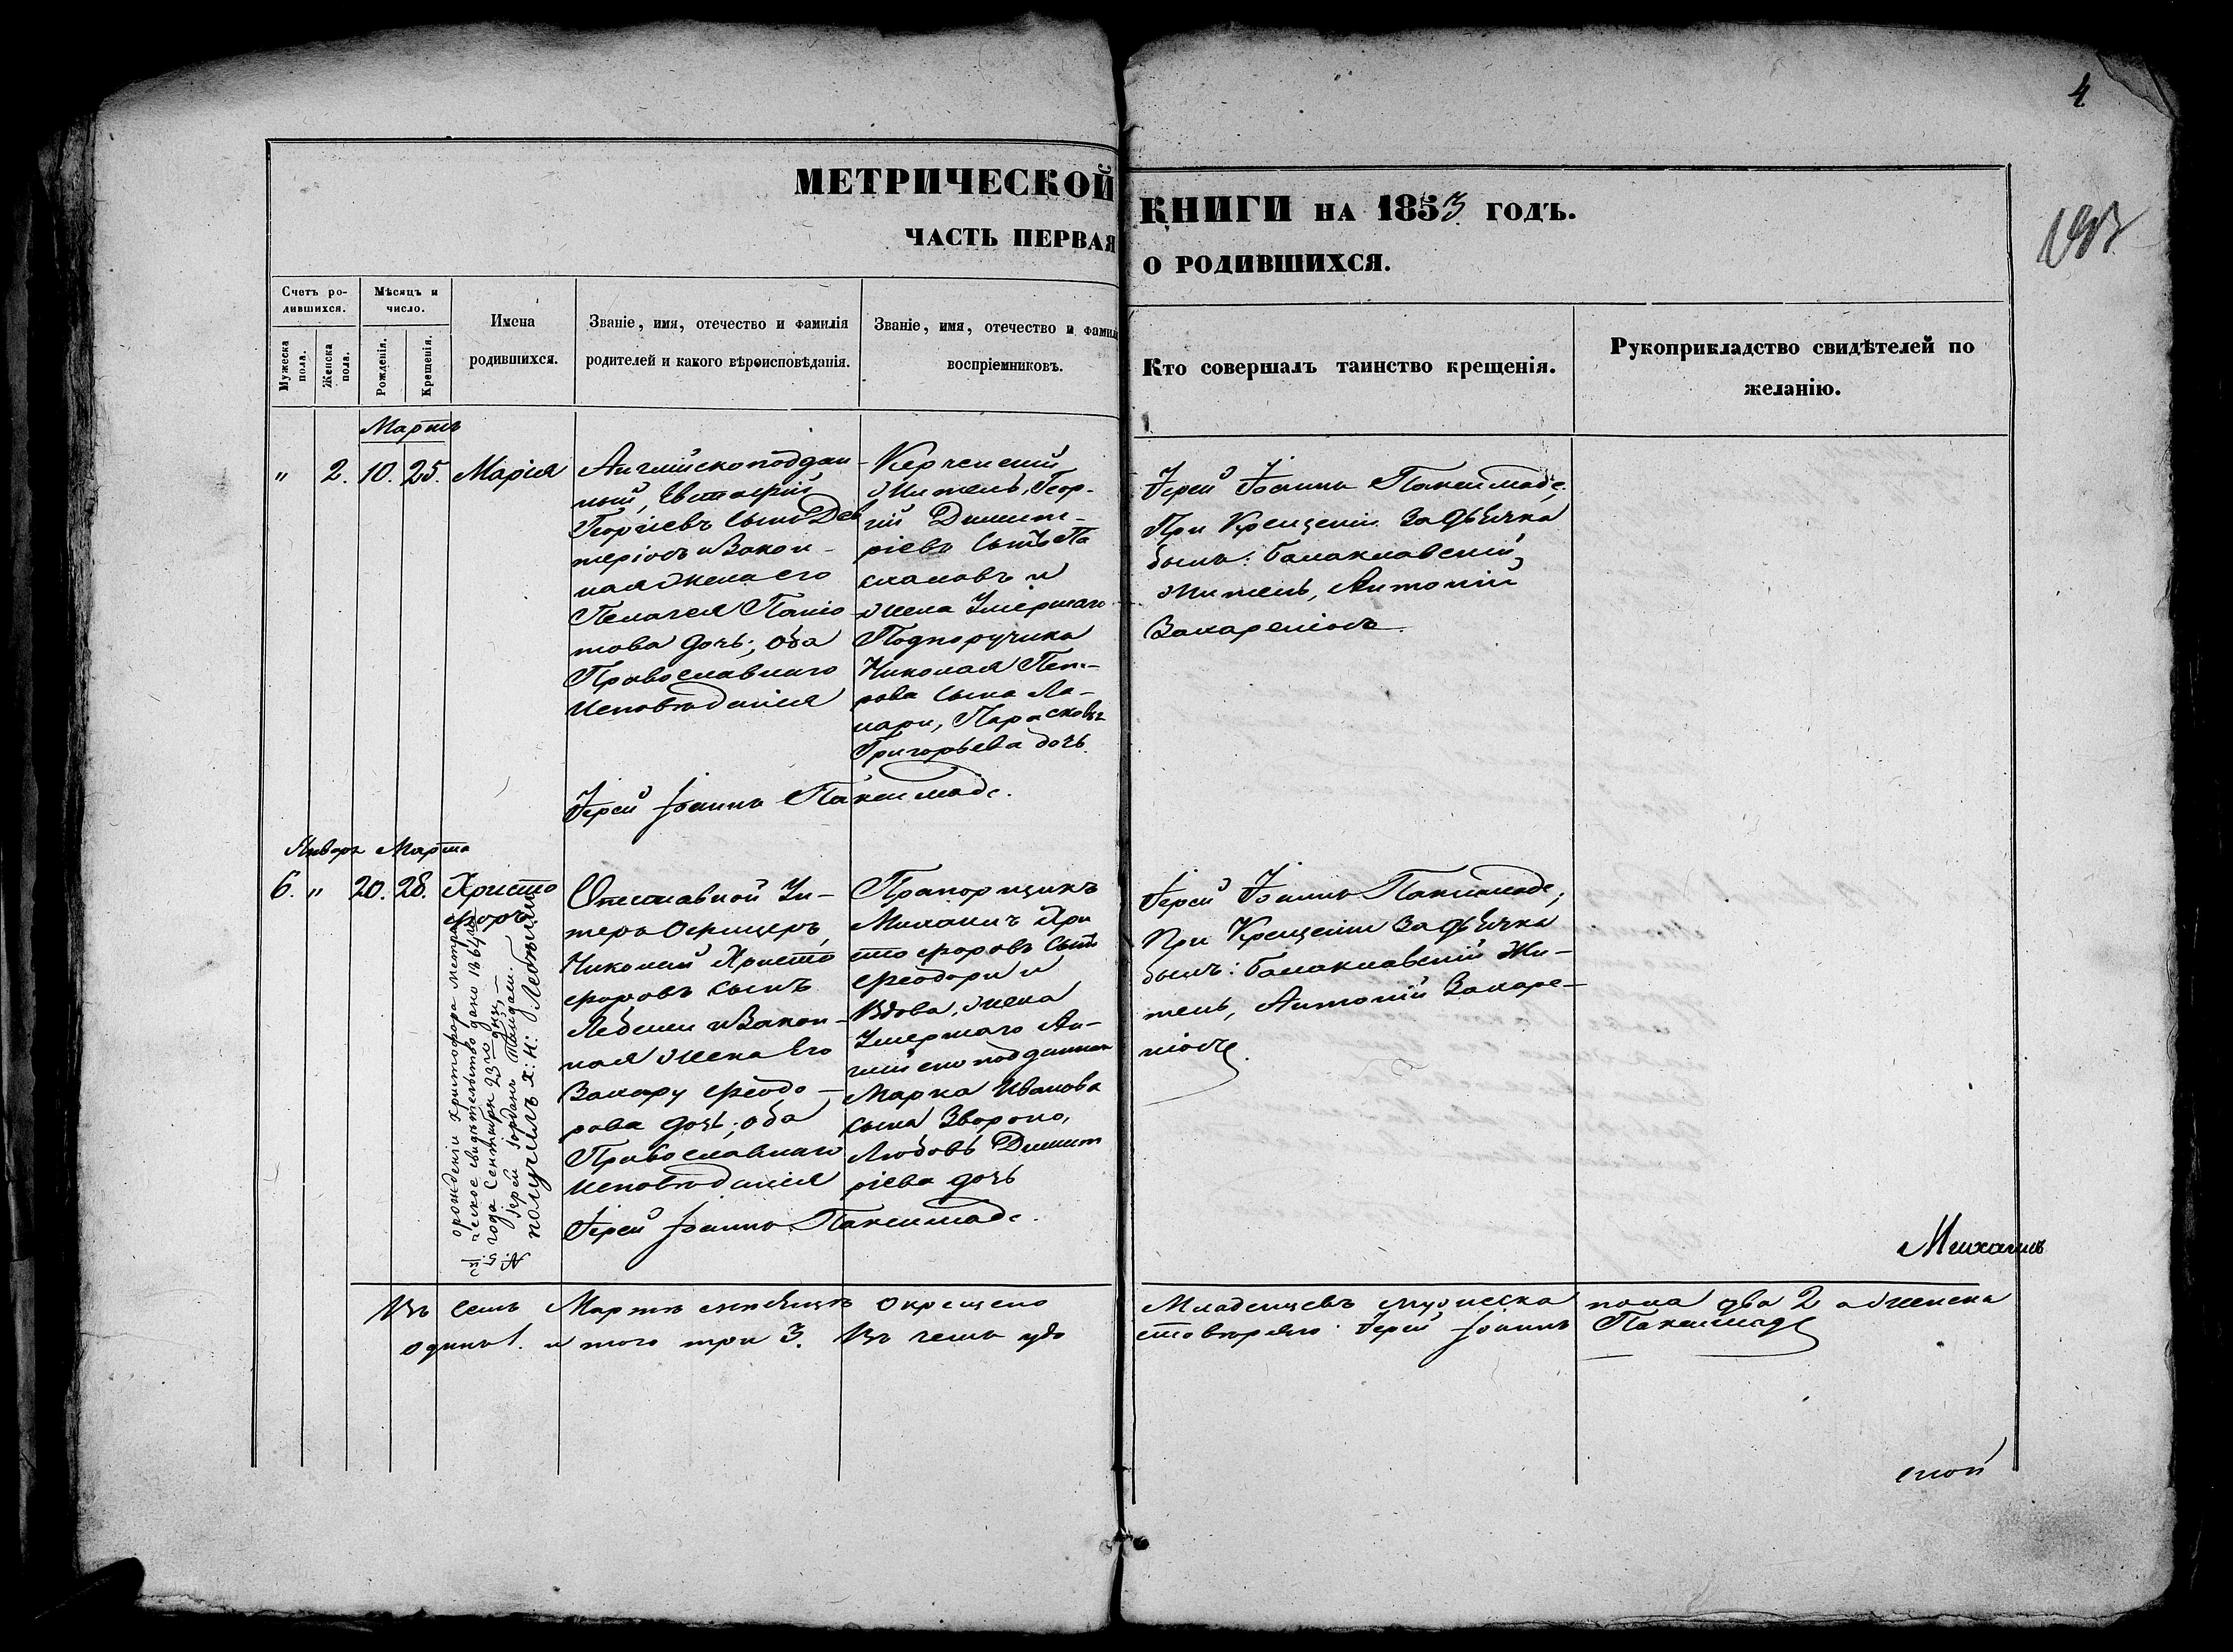 4
193
МЕТРИЧЕСКОЙ КНИГИ НА 1853 ГОДЪ.
ЧАСТЬ ПЕРВАЯ О РОДИВШИХСЯ.
Счетъ ро-
дившихся.
Мужеска
пола.
Женска
пола.
Мѣсяцъ и
число.
Рожденія.
Крещенія.
Имена
родившихся.
Званіе, имя, отечество и фамилія
родителей и какого вѣроисповѣданія.
Званіе, имя, отечество и фамил
воспріемниковъ.
Кто совершалъ таинство крещенія.
Рукоприкладство свидѣтелей по
желанію.
Мартъ
" 2. 10. 25. Марія
Англійскоподдан-
ный, Евстафій
Георгіевъ сынъ Дев
теріовъ и Закон-
ная жена его
Пелагея Паніо
това дочь; оба
Православнаго
Исповѣданія
Керченскій
Житель, Геор-
гій Димит-
ріевъ сынъ Па
слановъ и
жена Умершаго
Подпоручика
Николая Пет-
рова сына Ла-
пари, Парасковья
Григорьева дочь
Іерей Іоаннъ Паксимаде;
При Крещеніи За дьячка
былъ: балаклавскій
житель, Антоній
Іерей Іоаннъ Паксимаде.
Январь Марта
6. " 20. 28. Христо
форъ
о рожденіи христофора метри
ческое свидѣтельство дано 1864
года Сентября 23го дня,—
Іерей Іорданъ
получилъ х: н:
Отставной Ун-
теръ Офицеръ
Николай Христо
форовъ сынъ
и Закон-
ная жена Его
Феодо-
рова дочь; оба
Православнаго
Исповѣданія
Прапорщикъ
Михаилъ Хри
стофоровъ сынъ
Феодори и
Вдова, жена
Умершаго Ан-
глійскоподданнаго
Марка Иванова
сына Звороно,
Любовь Димит
ріева дочь
Іерей Іоаннъ Паксимаде;
При Крещеніи За дьячка
былъ: балаклавскій Жи-
тель, Антоній
Іерей Іоаннъ Паксимаде.
Михаилъ
Въ семъ Мартѣ мѣсяцѣ окрещено Младенцевъ мужеска пола два 2 а женска
одинъ 1. итого три 3. Въ чемъ удо стовѣряю Іерей Іоаннъ Паксимаде